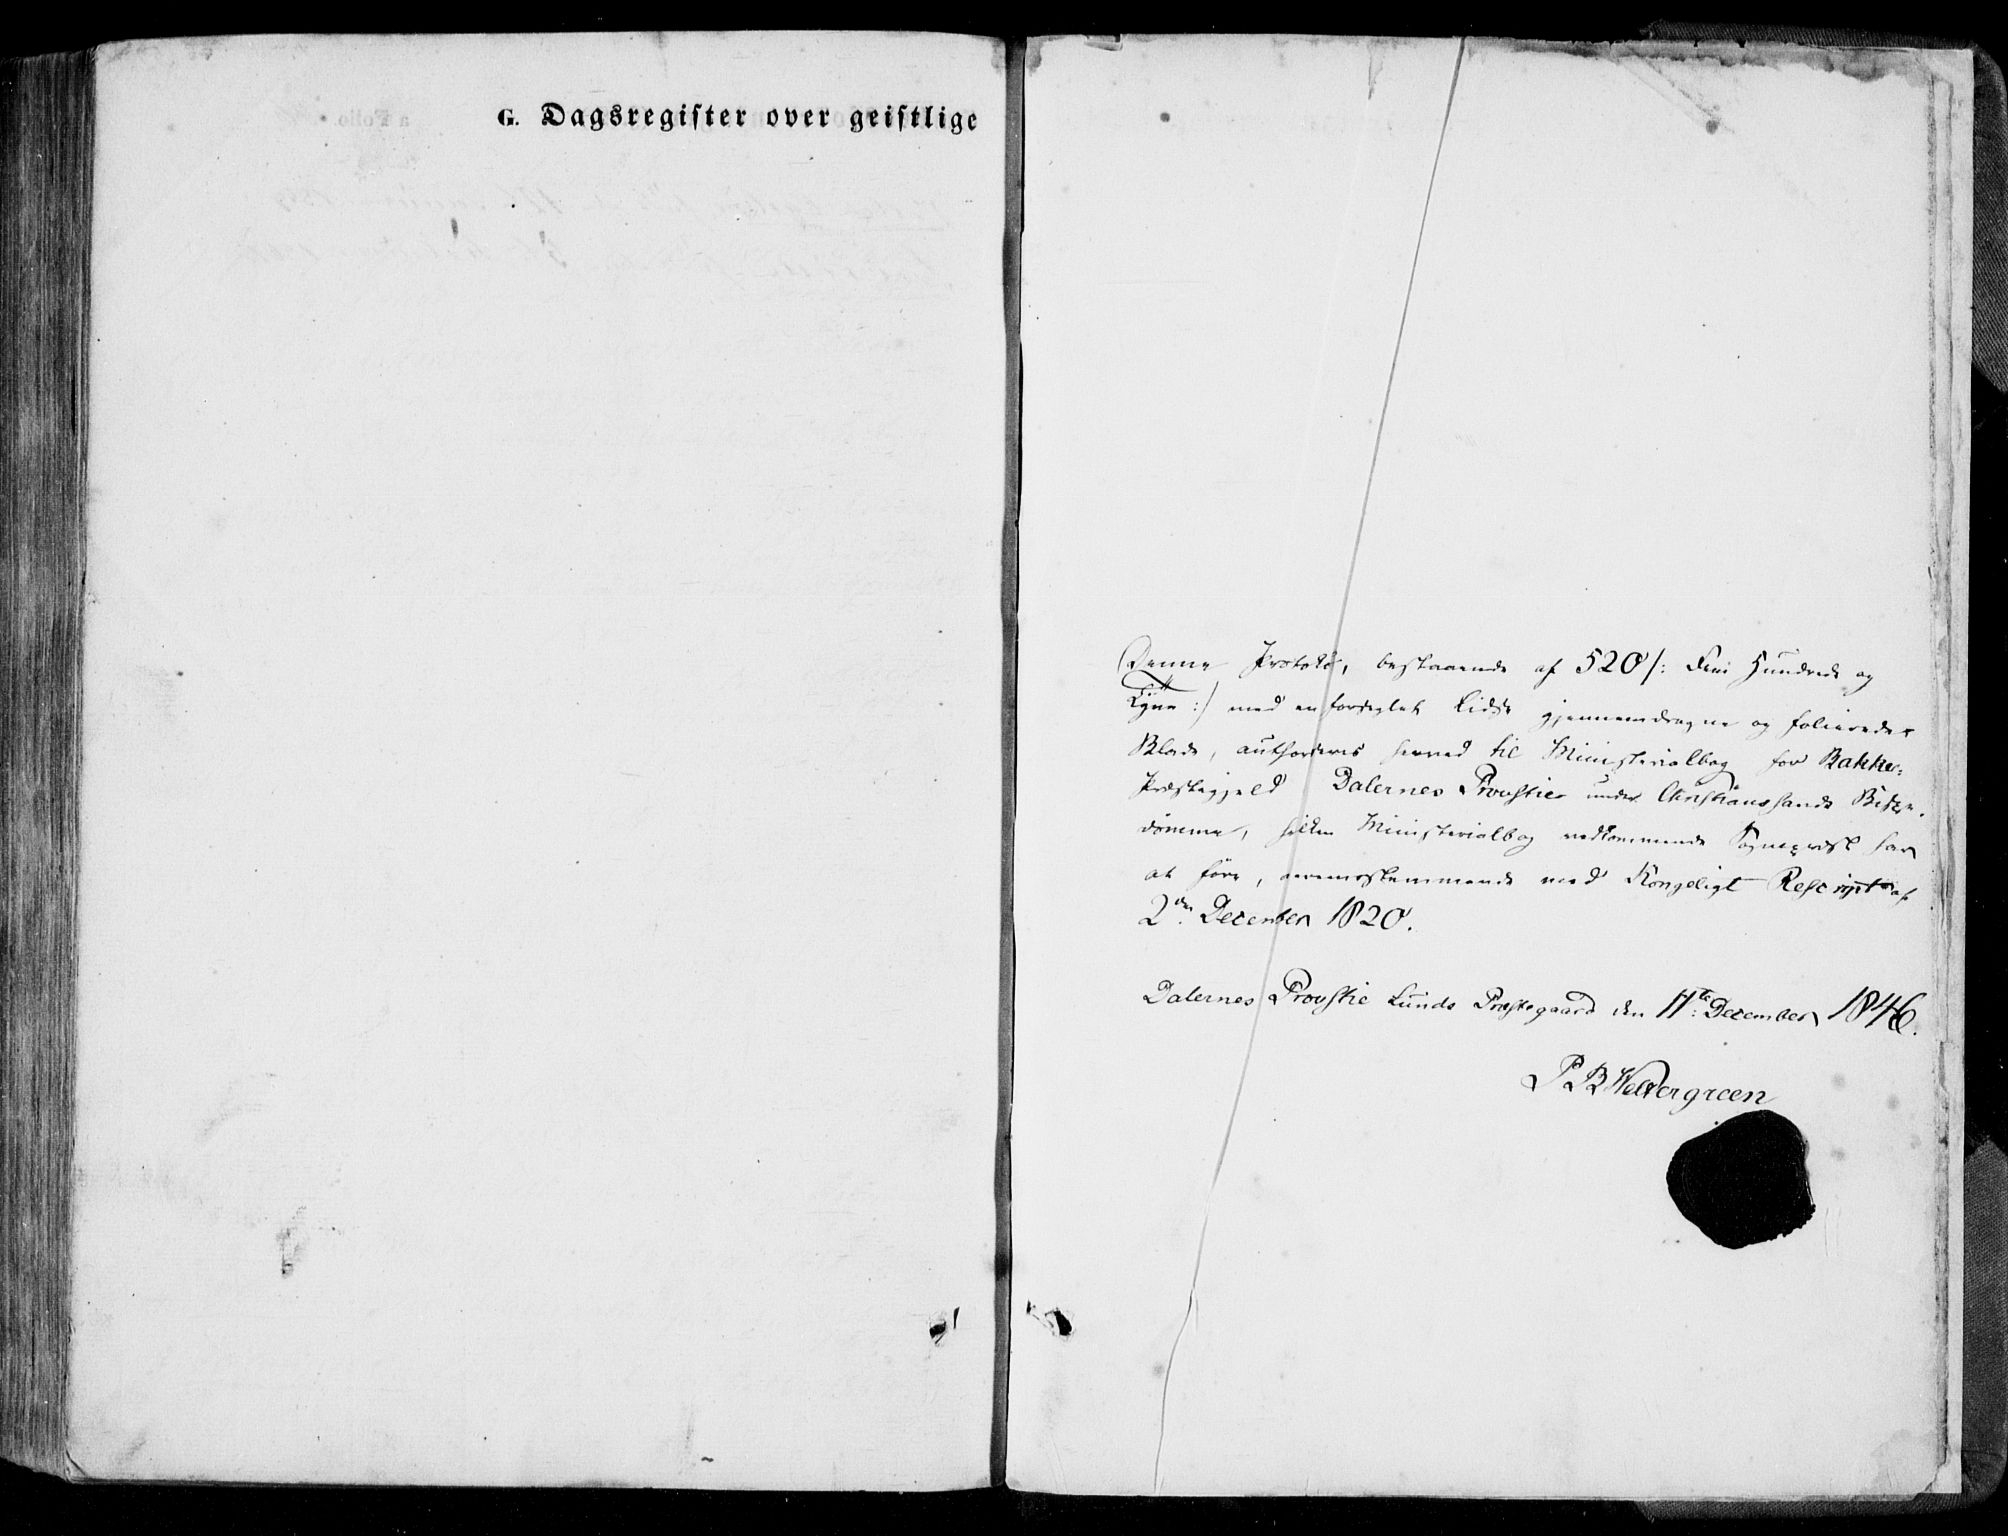 G. Dagsregister over geistlige
Denne Protokol, bestaaende af 520 /: Fem Hundrede og
Tyve :/ med en forseglet Lidse gjennemdragne og folierede
Blade, authoriseres herved til Ministerialbog for Bakke
Præstegjeld Dalernes Provstie under Christianssands Bispe-
dømme, hvilken Ministerialbog vedkommende Sognepræst har
at føre, overensstemmende med Kongeligt Rescript af
2den December 1820.
Dalernes Provstie Lunds Præstegaard den 11te December 1846.
P B Wettergreen